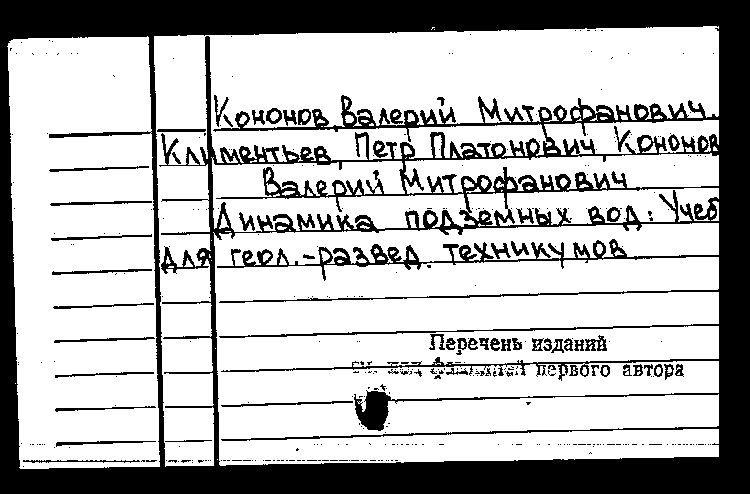 Кононов, Валерий Митрофанович.
Климентьев, Петр Платонович, Кононов
Валерий Митрофанович
Динамика подземных вод: Учеб
для геол.-развед. техникумов
Перечень изданий
см. под фамилией первого автора